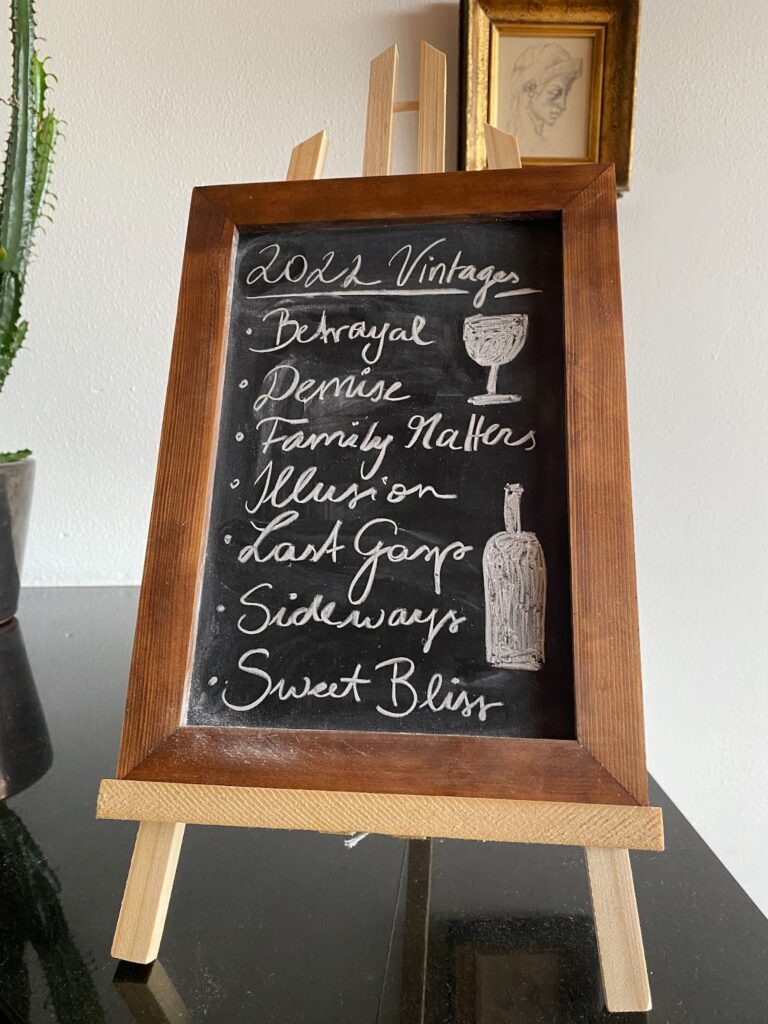 2022 Vintages
• Betrayal
• Demise
• Family Matters
• Illusion
• Last Gasp
• Sideways
• Sweet Bliss